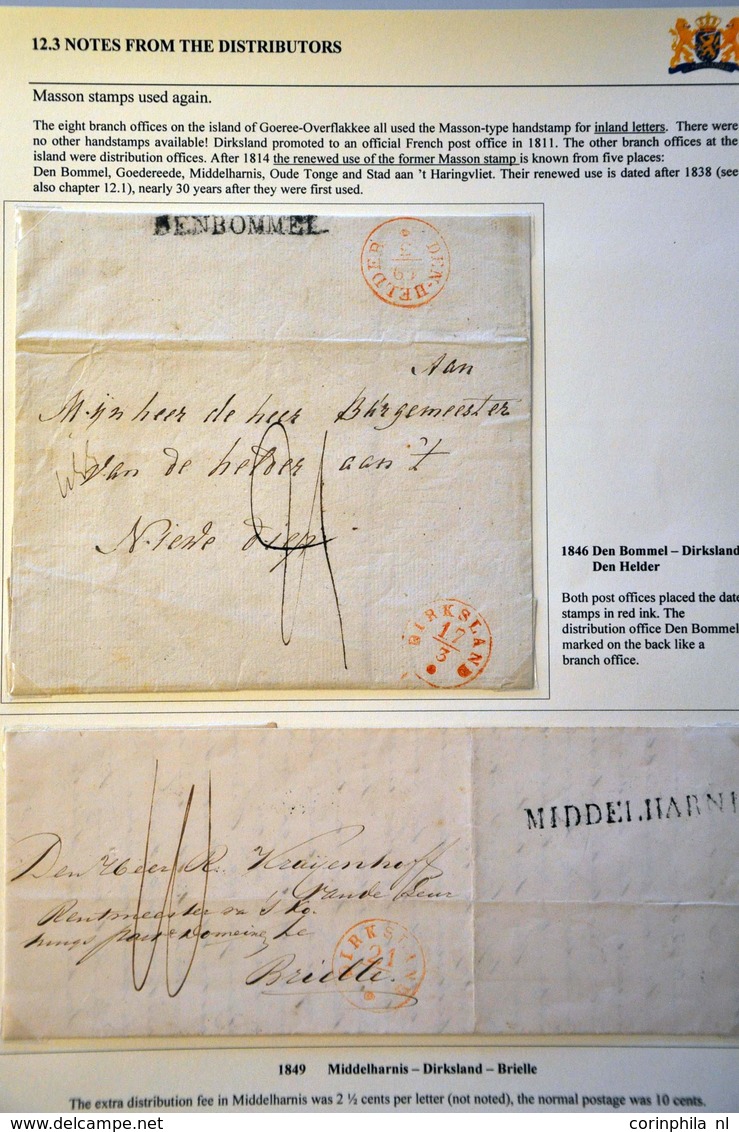 12.3 NOTES FROM THE DISTRIBUTORS
Masson stamps used again.
The eight branch offices on the island of Goeree-Overflakkee all used the Masson-type handstamp for inland letters. There were
no other handstamps available! Dirksland promoted to an official French post office in 1811. The other branch offices at the
island were distribution offices. After 1814 the renewed use of the former Masson stamp is known from five places:
Den Bommel, Goedereede, Middelharnis, Oude Tonge and Stad aan 't Haringvliet. Their renewed use is dated after 1838 (see
also chapter 12.1), nearly 30 years after they were first used.
DENBOMMEL
DEN-HELDER
Aan
Mijn heer de heer Burgemeester
van de helder aan 't
Niewe diep
DIRKSLAND
17
3
1846 Den Bommel – Dirksland
Den Helder
Both post offices placed the date
stamps in red ink. The
distribution office Den Bommel
marked on the back like a
branch office.
MIDDELHARNI
Den Heer R. Kraijenhoff
van de Leur
Rentmeester
Brielle.
DIRKSLAND
21
1849 Middelharnis – Dirksland – Brielle
The extra distribution fee in Middelharnis was 2 ½ cents per letter (not noted), the normal postage was 10 cents.
corinphila nl